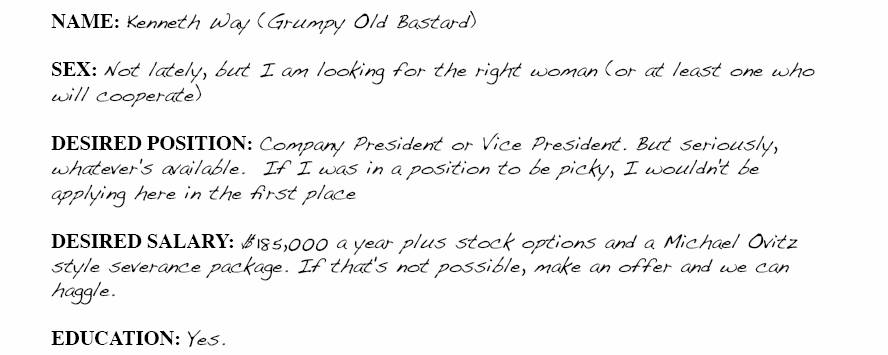 NAME: Kenneth Way (Grumpy Old Bastard)
SEX: Not lately, but I am looking for the right woman (or at least one who
will cooperate)
DESIRED POSITION: Company President or Vice President. But seriously,
whatever's available. If I was in a position to be picky, I wouldn't be
applying here in the first place
DESIRED SALARY: $185,000 a year plus stock options and a Michael Ovitz
style severance package. If that's not possible, make an offer and we can
haggle.
EDUCATION: Yes.